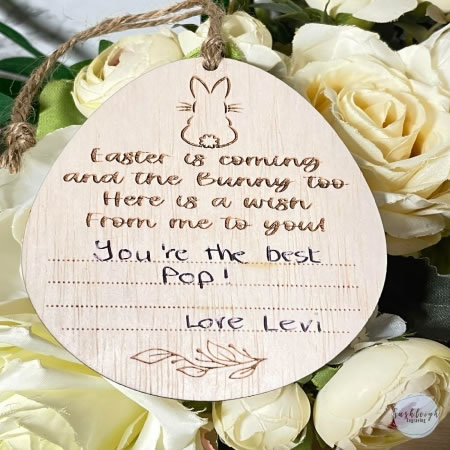 Easter is coming
and the Bunny too
Here is a wish
From me to you!
You're the best
Pop!
Love Levi